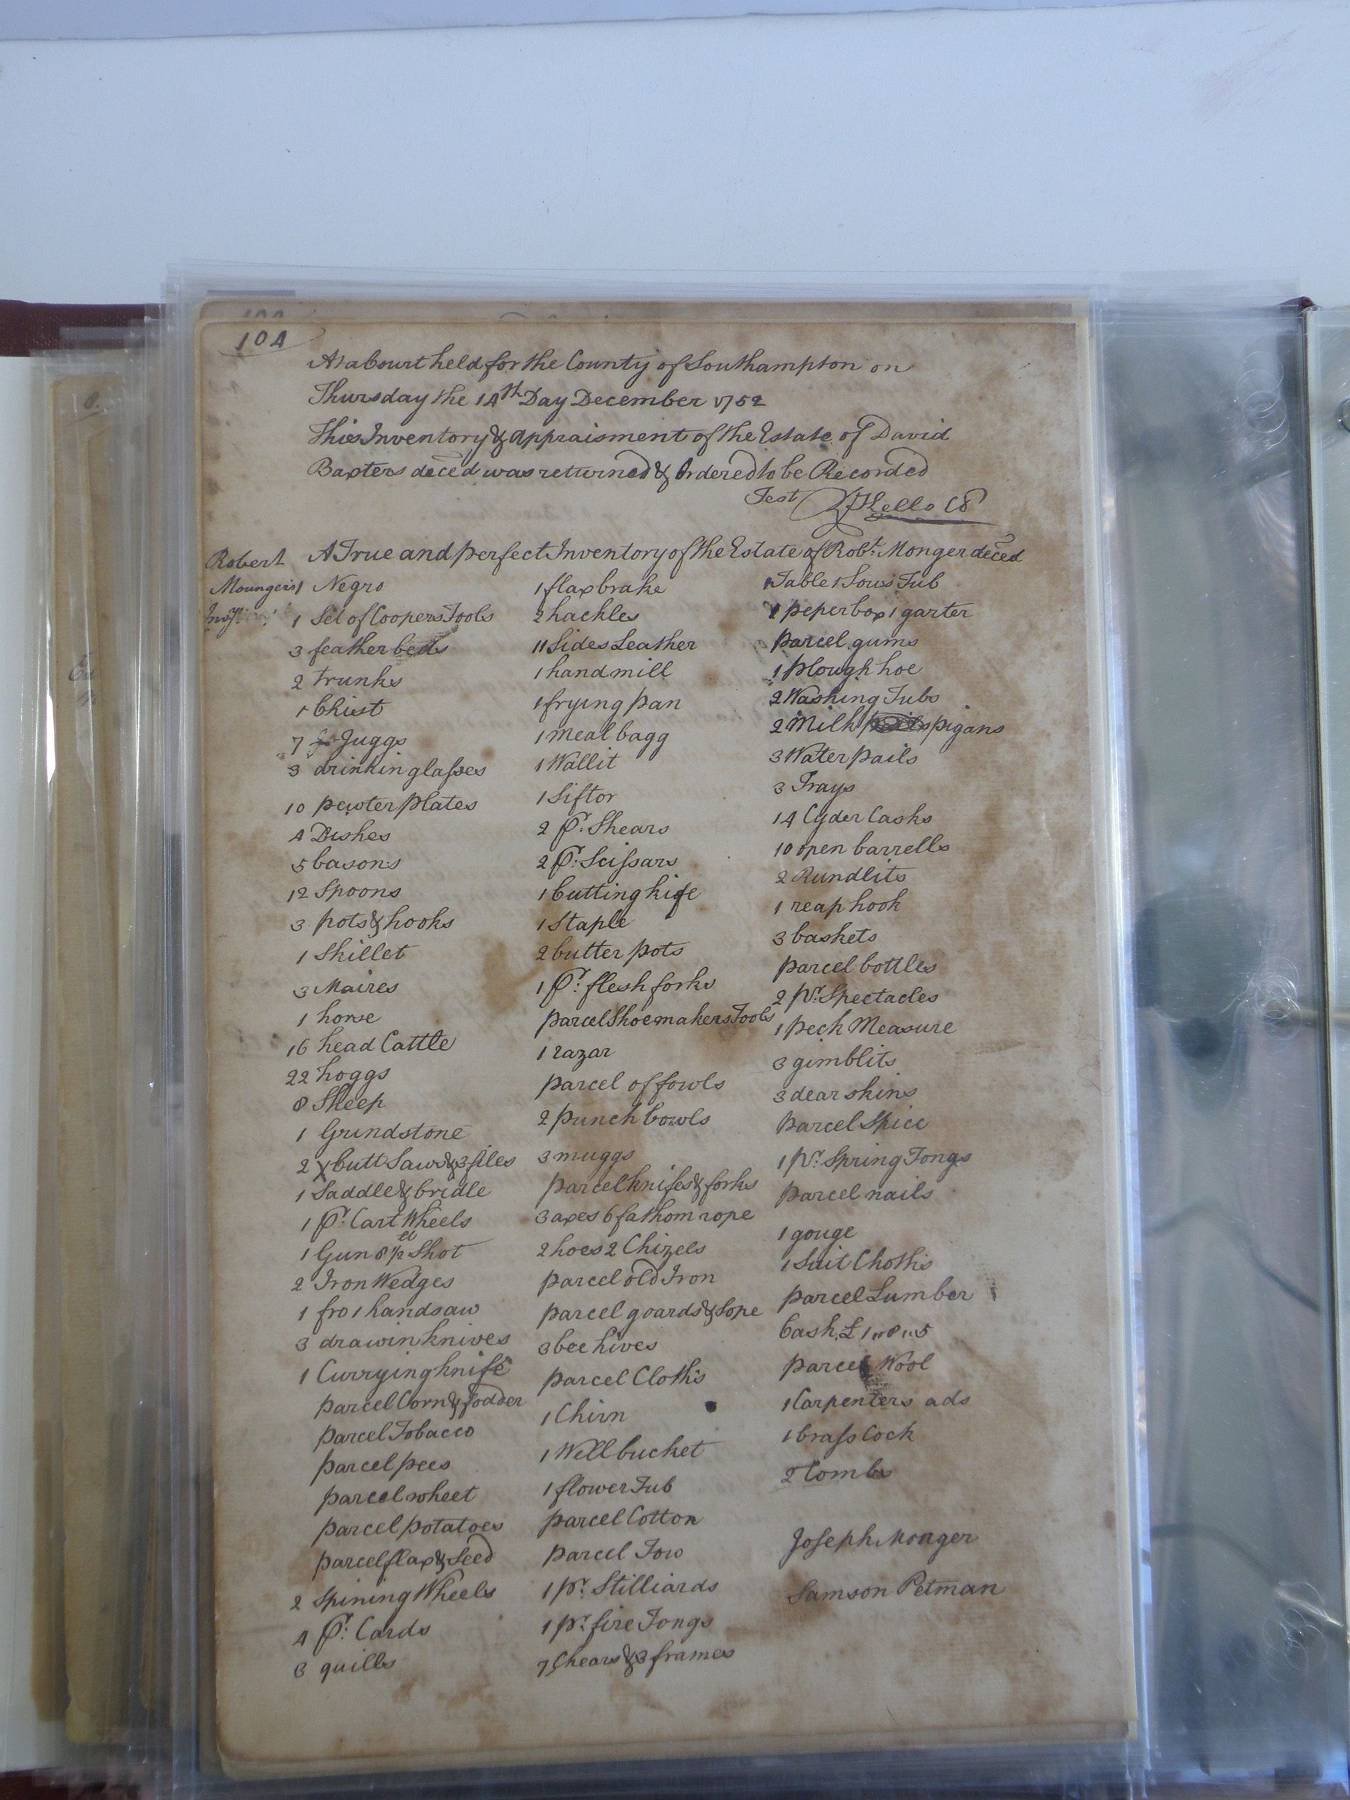 104
At a Court held for the County of Southampton on
Thursday the 14th Day December 1752
This Inventory & appraisment of the Estate of David
Baxters deced was returned & Ordered to be Recorded
Test
Robert
Moungers
A True and perfect Inventory of the Estate of Robt. Monger deced
1 Negro
1 Set of Coopers Tools
3 feather beds
2 trunks
1 Chist
7 Juggs
3 drinkin glasses
10 pewter plates
4 Dishes
5 basons
12 Spoons
3 pots & hooks
1 Skillet
3 Maires
1 horse
16 head Cattle
22 hoggs
8 Sheep
1 Grindstone
2 X butt Saws & 3 files
1 Saddle & bridle
1 Pr. Cart Wheels
1 Gun 8 lb Shot
2 Iron Wedges
1 fro 1 handsaw
3 drawin knives
1 Currying knife
parcel Corn & fodder
parcel Tobacco
parcel pees
parcel wheet
parcel potatoes
parcel flax & Seed
2 Spining Wheels
4 Pr. Cards
3 quills
1 flax brake
2 hackles
11 Sides Leather
1 hand mill
1 frying pan
1 meal bagg
1 Wallit
1 Siftor
2 Pr. Shears
2 Pr. Scissars
1 Cutting knife
1 Staple
2 butter pots
1 Pr. flesh forks
parcel Shoemakers Tools
1 razar
parcel of fowls
2 punch bowls
3 muggs
parcel knifes & forks
3 axes 6 fathom rope
2 hoes 2 Chizels
parcel old Iron
parcel goards & Sope
3 bee hives
parcel Cloths
1 Chirn
1 Well bucket
1 flower Tub
parcel Cotton
parcel Tow
1 pr. Stilliards
1 pr. fire Tongs
7 Chears & 3 frames
1 Table 1 Sows Tub
1 peper box 1 garter
parcel gums
1 plough hoe
2 Washing Tubs
2 Milk pigans
3 Water pails
3 Trays
14 Cyder Casks
10 open barrells
2 Rundlits
1 reap hook
3 baskets
parcel bottles
2 pr. Spectacles
1 peck Measure
3 gimblits
3 dear skins
parcel Spice
1 pr. Spring Tongs
parcel nails
1 gouge
1 Suit Cloths
parcel Lumber
Cash £ 1 " 8 " 5
parcel Wool
1 Carpenters ads
1 brass Cock
2 Combs
Joseph Monger
Samson Petman